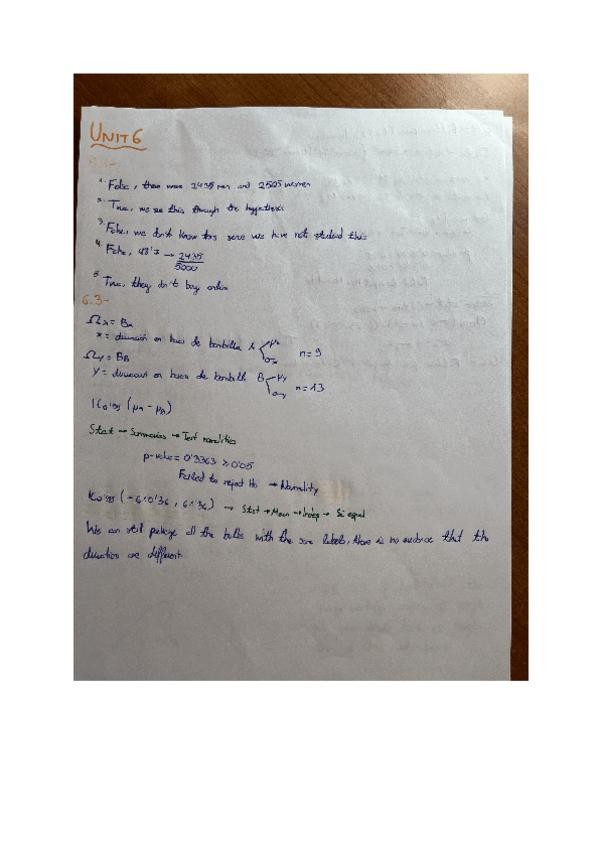 UNIT 6
6.1-
1. False, there were 2435 men and 2565 women
2. True, we see this through the hypothesis
3. False, we don't know this since we have not studied this
4. False, 48'7 → 2435/5000
5. True, they don't buy online
6.3-
Ωx = BA
X = duración en horas de bombilla A μx σx n = 9
Ωy = BB
Y = duracion en horas de bombilla B μy σy n = 13
IC0'95 (μA - μB)
Stat → Summaries → Test normalities
p-value = 0'3363 ≥ 0'05
Failed to reject H0 → Normality
IC0'95 → Stat → Mean → Indep → Si equal
We can still package all the bulbs with the same labels, there is no evidence that the
duration are different